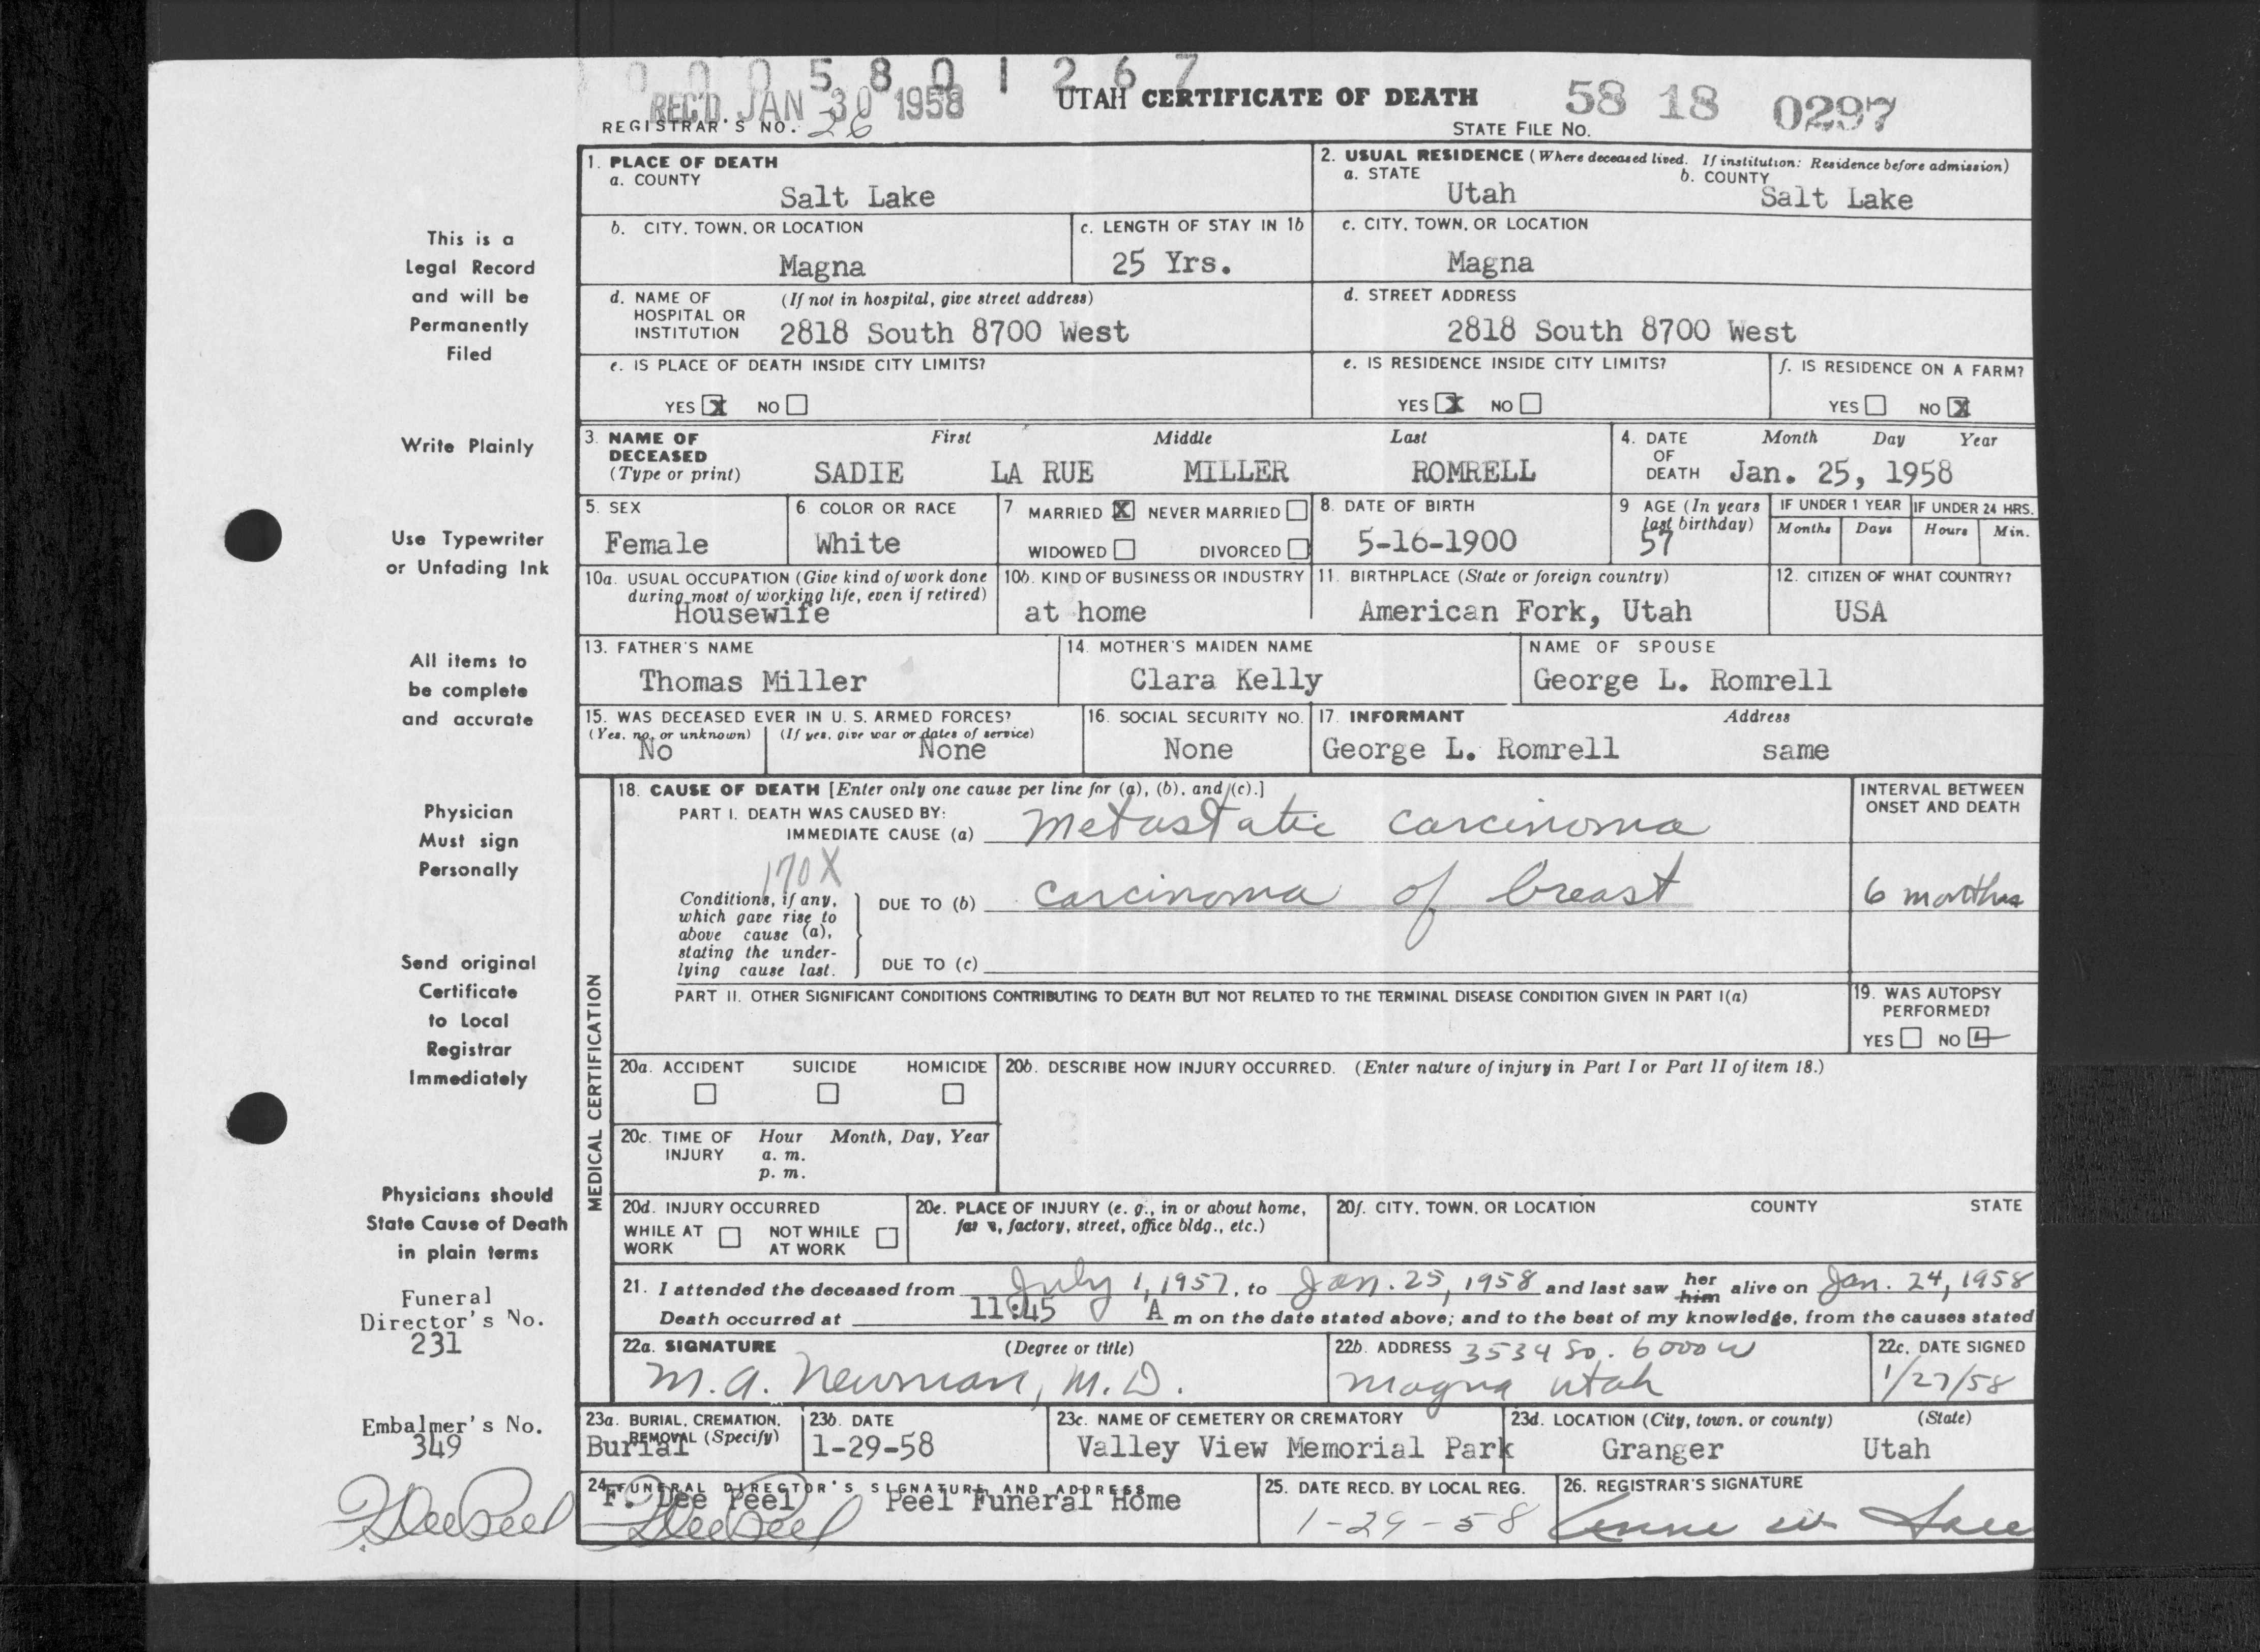 0 0 0 5 8 0 1 2 6 7
REC'D JAN 30 1958
UTAH CERTIFICATE OF DEATH
58 18 0297
REGISTRAR'S NO. 26
STATE FILE No.
1. PLACE OF DEATH
a. COUNTY
Salt Lake
2. USUAL RESIDENCE (Where deceased lived. If institution: Residence before admission)
a. STATE
Utah
b. COUNTY
Salt Lake
b. CITY, TOWN, OR LOCATION
Magna
c. LENGTH OF STAY IN 1b
25 Yrs.
c. CITY, TOWN, OR LOCATION
Magna
d. NAME OF HOSPITAL OR INSTITUTION
(If not in hospital, give street address)
2818 South 8700 West
d. STREET ADDRESS
2818 South 8700 West
e. IS PLACE OF DEATH INSIDE CITY LIMITS?
YES X NO
e. IS RESIDENCE INSIDE CITY LIMITS?
YES X NO
f. IS RESIDENCE ON A FARM?
YES NO X
3. NAME OF DECEASED
(Type or print)
First Middle Last
SADIE LA RUE MILLER ROMRELL
4. DATE OF DEATH
Month Day Year
Jan. 25, 1958
5. SEX
Female
6. COLOR OR RACE
White
7 MARRIED X NEVER MARRIED
WIDOWED DIVORCED
8. DATE OF BIRTH
5-16-1900
9 AGE (In years last birthday)
57
IF UNDER 1 YEAR
Months Days
IF UNDER 24 HRS.
Hours Min.
10a. USUAL OCCUPATION (Give kind of work done during most of working life, even if retired)
Housewife
10b. KIND OF BUSINESS OR INDUSTRY
at home
11. BIRTHPLACE (State or foreign country)
American Fork, Utah
12. CITIZEN OF WHAT COUNTRY?
USA
13. FATHER'S NAME
Thomas Miller
14. MOTHER'S MAIDEN NAME
Clara Kelly
NAME OF SPOUSE
George L. Romrell
15. WAS DECEASED EVER IN U. S. ARMED FORCES?
(Yes, no, or unknown) (If yes, give war or dates of service)
No None
16. SOCIAL SECURITY NO.
None
17. INFORMANT Address
George L. Romrell same
MEDICAL CERTIFICATION
18. CAUSE OF DEATH [Enter only one cause per line for (a), (b), and (c).]
PART I. DEATH WAS CAUSED BY:
IMMEDIATE CAUSE (a) Metastatic carcinoma
170X
Conditions, if any, which gave rise to above cause (a), stating the underlying cause last.
DUE TO (b) carcinoma of breast
DUE TO (c)
INTERVAL BETWEEN ONSET AND DEATH
6 months
PART II. OTHER SIGNIFICANT CONDITIONS CONTRIBUTING TO DEATH BUT NOT RELATED TO THE TERMINAL DISEASE CONDITION GIVEN IN PART I(a)
19. WAS AUTOPSY PERFORMED?
YES NO
20a. ACCIDENT SUICIDE HOMICIDE
20b. DESCRIBE HOW INJURY OCCURRED. (Enter nature of injury in Part I or Part II of item 18.)
20c. TIME OF INJURY
Hour Month, Day, Year
a. m.
p. m.
20d. INJURY OCCURRED
WHILE AT WORK NOT WHILE AT WORK
20e. PLACE OF INJURY (e. g., in or about home, farm, factory, street, office bldg., etc.)
20f. CITY, TOWN, OR LOCATION COUNTY STATE
21. I attended the deceased from July 1, 1957, to Jan. 25, 1958 and last saw her him alive on Jan. 24, 1958
Death occurred at 11:45 A m on the date stated above; and to the best of my knowledge, from the causes stated
22a. SIGNATURE (Degree or title)
M. A. Newman, M. D.
22b. ADDRESS 3534 So. 6000 W
Magna Utah
22c. DATE SIGNED
1/27/58
23a. BURIAL, CREMATION, REMOVAL (Specify)
Burial
23b. DATE
1-29-58
23c. NAME OF CEMETERY OR CREMATORY
Valley View Memorial Park
23d. LOCATION (City, town, or county) (State)
Granger Utah
24 FUNERAL DIRECTOR'S SIGNATURE AND ADDRESS
F. Dee Peel Peel Funeral Home
F Dee Peel
25. DATE RECD. BY LOCAL REG.
1-29-58
26. REGISTRAR'S SIGNATURE
This is a
Legal Record
and will be
Permanently
Filed
Write Plainly
Use Typewriter
or Unfading Ink
All items to
be complete
and accurate
Physician
Must sign
Personally
Send original
Certificate
to Local
Registrar
Immediately
Physicians should
State Cause of Death
in plain terms
Funeral
Director's No.
231
Embalmer's No.
349
F Dee Peel